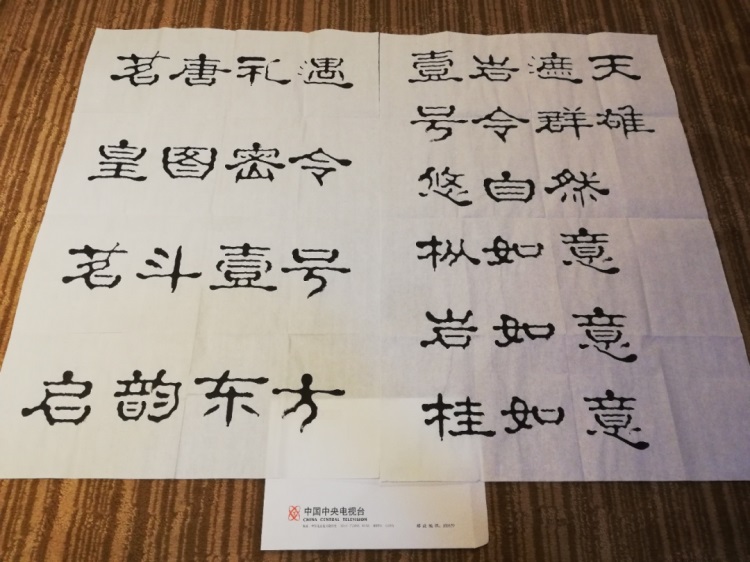 茗唐礼遇
皇图密令
茗斗壹号
启韵东方
壹岩遮天
号令群雄
悠自然
枞如意
岩如意
桂如意
中国中央电视台
CHINA CENTRAL TELEVISION